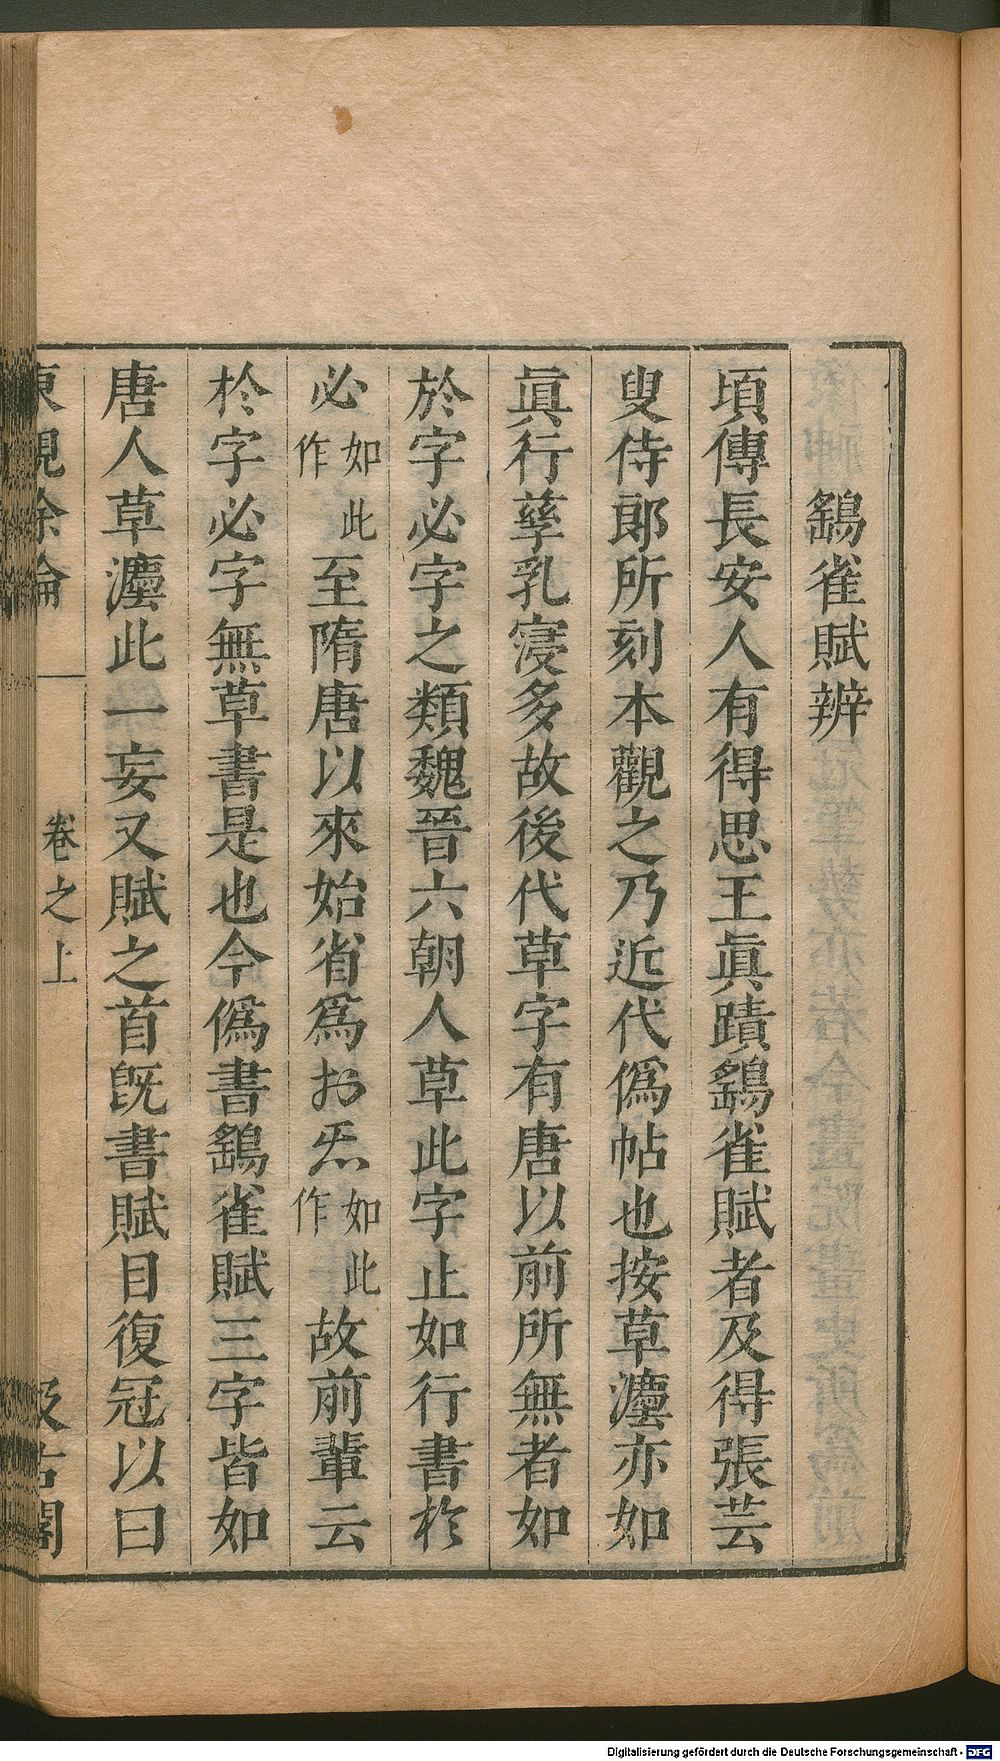 鷂雀賦辨
頃傳長安人有得思王眞蹟鷂雀賦者及得張芸
叟侍郎所刻本觀之乃近代僞帖也按草灋亦如
眞行孳乳寖多故後代草字有唐以前所無者如
於字必字之類魏晉六朝人草此字止如行書於
必如此作至隋唐以來始省爲如此作故前輩云
於字必字無草書是也今僞書鷂雀賦三字皆如
唐人草灋此一妄又賦之首旣書賦目復冠以曰
東觀餘論
卷之上
汲古閣
Digitalisierung gefördert durch die Deutsche Forschungsgemeinschaft - DFG